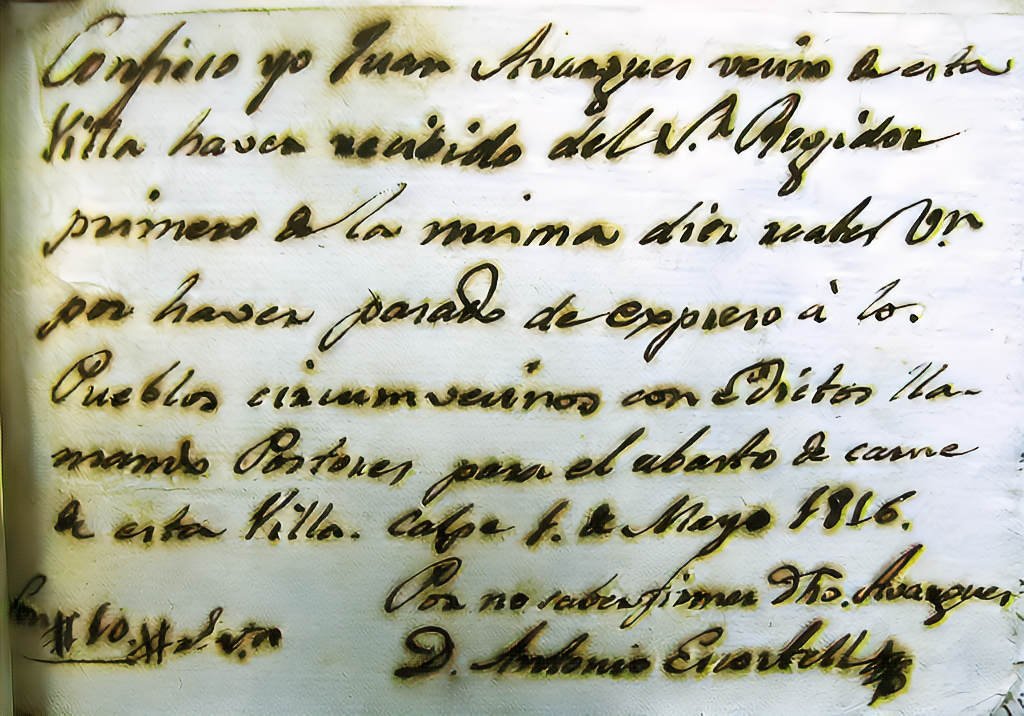 Confieso yo Juan Avargues vecino de esta
Villa haver recibido del S.r Regidor
primero de la misma diez reales Vn.
por haver pasado de expreso à los
Pueblos circumvecinos con Edictos lla-
mando Postores para el abasto de carne
de esta Villa. Calpe 1. de Mayo 1816.
Por no saber firmar Dho. Avargues
Son # 10. # r.s v.n
D. Antonio Escortell